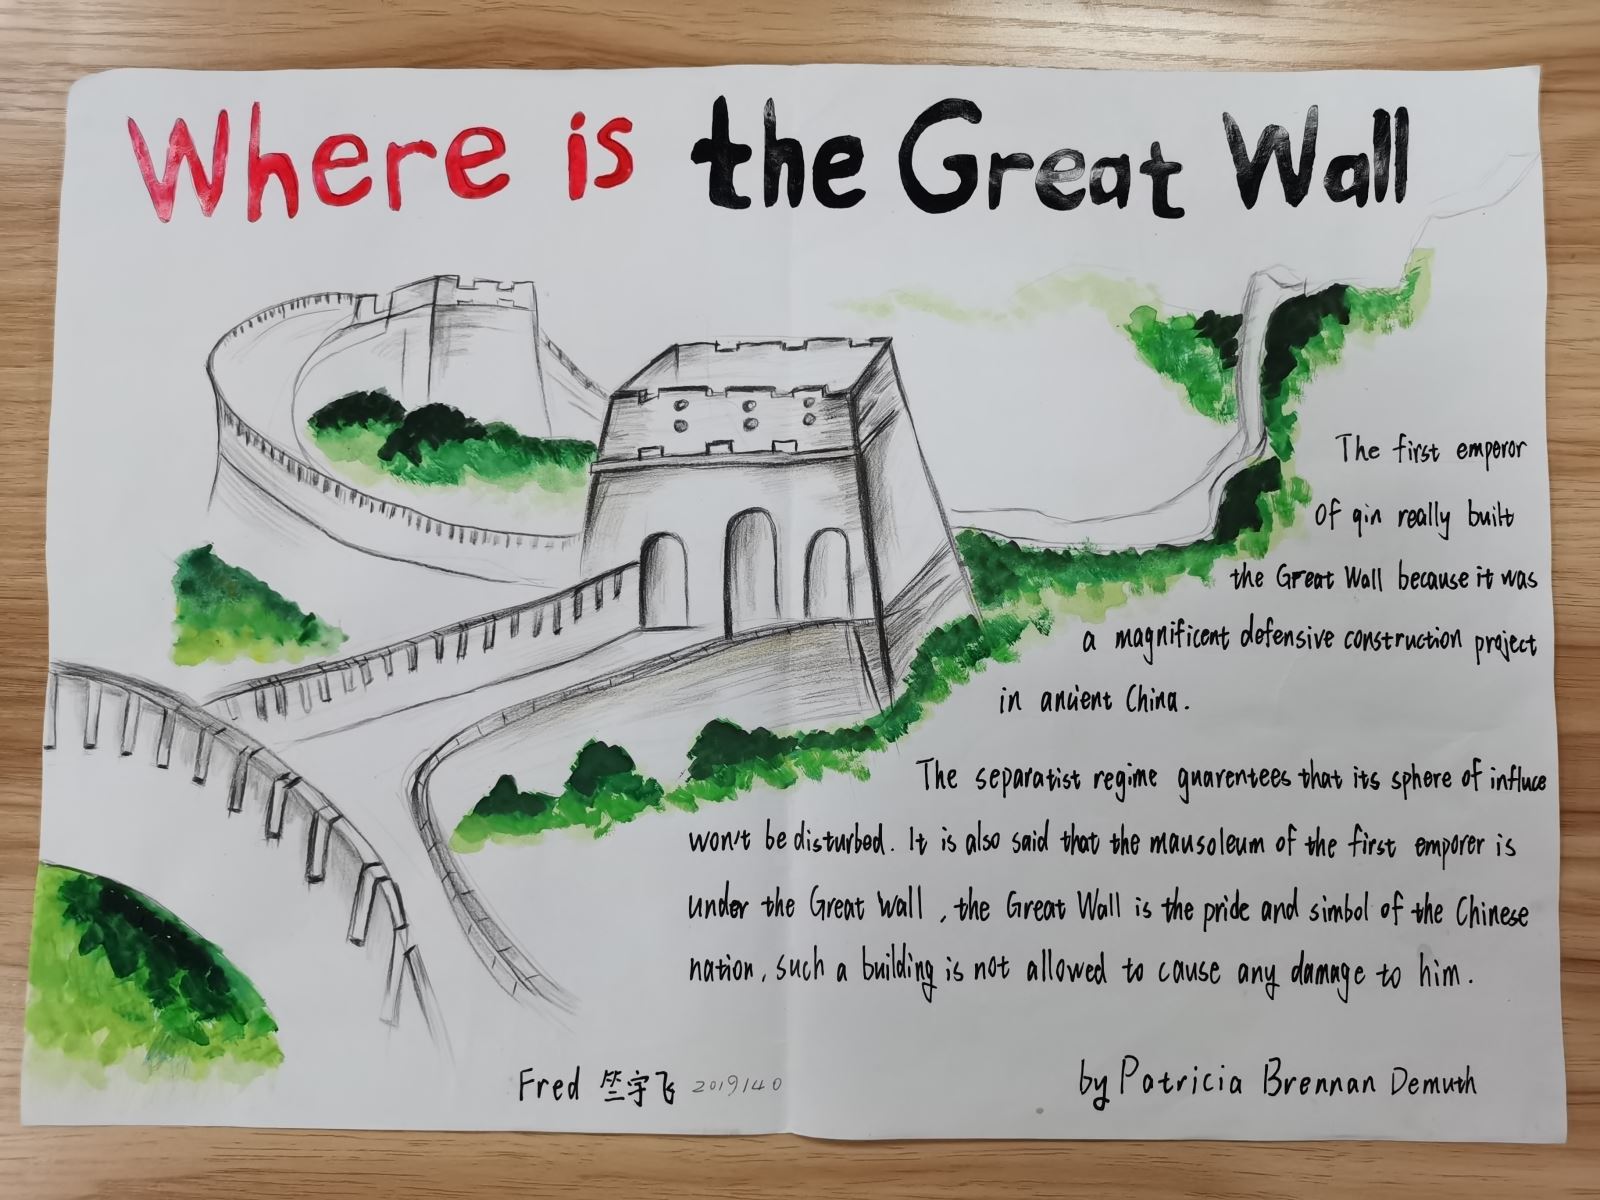 Where is the Great Wall
The first emperor
of qin really built
the Great Wall because it was
a magnificent defensive construction project
in ancient China.
The separatist regime guarentees that its sphere of influce
won't be disturbed. It is also said that the mausoleum of the first emporer is
under the Great Wall, the Great Wall is the pride and simbol of the Chinese
nation, such a building is not allowed to cause any damage to him.
Fred 竺宇飞 2019140
by Patricia Brennan Demuth